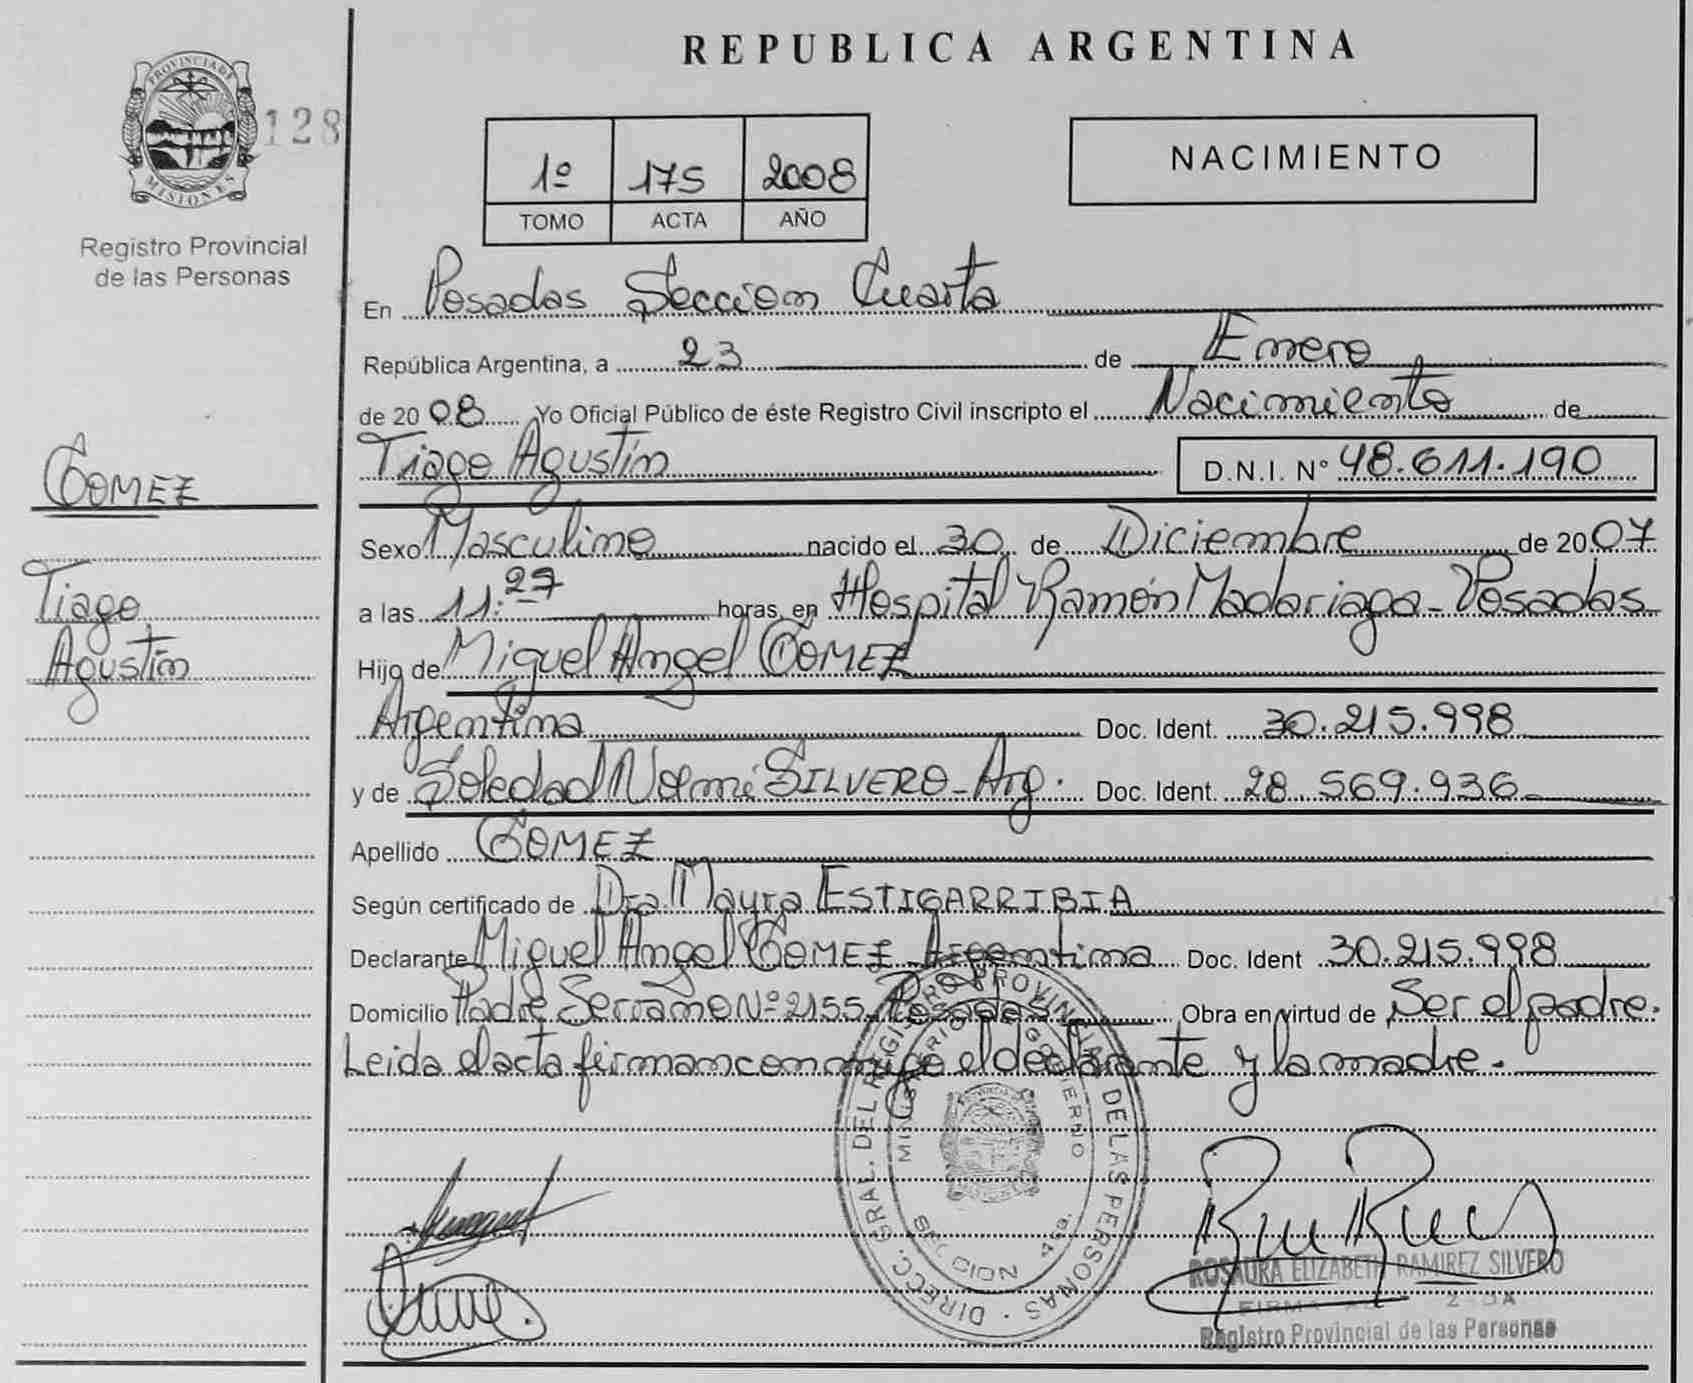 REPUBLICA ARGENTINA
PROVINCIA DE
MISIONES
128
Registro Provincial
de las Personas
1º 175 2008
TOMO ACTA AÑO
NACIMIENTO
En Posadas Sección Cuarta
República Argentina, a 23 de Enero
de 2008 Yo Oficial Público de éste Registro Civil inscripto el Nacimiento de
Tiago Agustín D.N.I. Nº 48.611.190
GOMEZ
Tiago
Agustín
Sexo Masculino nacido el 30 de Diciembre de 2007
a las 11:27 horas, en Hospital Ramón Madariaga - Posadas
Hijo de Miguel Angel GOMEZ
Argentina Doc. Ident. 30.215.998
y de Soledad Noemí SILVERO - Arg. Doc. Ident. 28.569.936
Apellido GOMEZ
Según certificado de Dra. Mayra ESTIGARRIBIA
Declarante Miguel Angel GOMEZ - Argentina Doc. Ident 30.215.998
Domicilio Padre Serrano Nº 2155 - Posadas Obra en virtud de Ser el padre.
Leida el acta firman conmigo el declarante y la madre.-
DIRECC. GRAL. DEL REGISTRO PROVINCIAL DE LAS PERSONAS
MINISTERIO GOBIERNO
SECCION 4ta.
ROSAURA ELIZABETH RAMIREZ SILVERO
Registro Provincial de las Personas